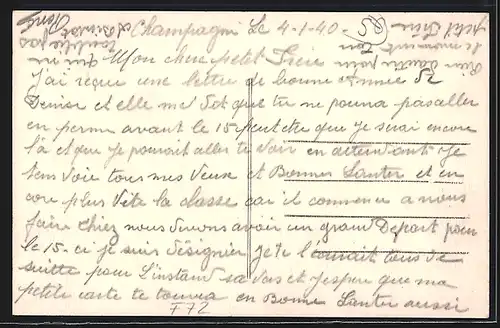 Champagni Le 4-1-40
Mon cher petit Frère
j'ai reçue une lettre de bonne Année de
Denise et elle me dit que tu ne pourra pas aller
en perme avant le 15 peut etre que je serai encore
là et que je pourait aller te voir en attendant je
tem voie tous mes Veux et Bonner Santer et en
core plus Vite la classe car il commence a nous
faire chier nous devons avoir un grand Depart pour
le 15. ci je suis désignier je te l'ecrirait tous de
suitte pour L'instant sa vas et j'espere que ma
petite carte te trouva en Bonne Santer aussi
F72
petit Frère